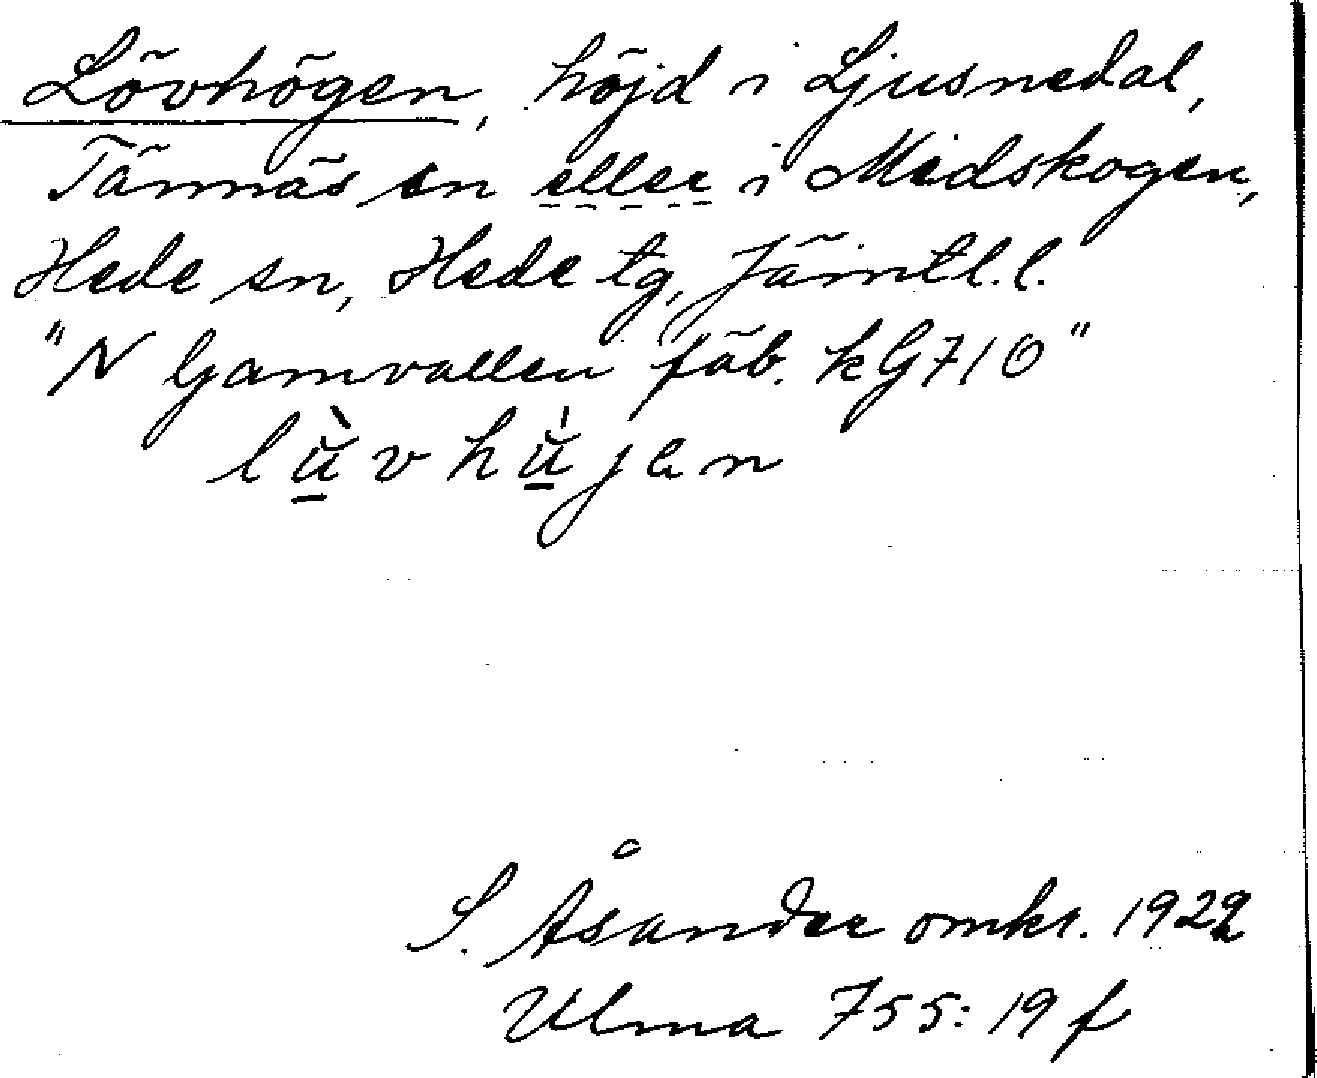 Lövhögen, höjd i Ljusnedal,
Tännäs sn eller i Medskogen,
Hede sn, Hede tg, Jämtl. l.
"N Gamvallen fäb. kG710"
S. Åsander omkr. 1922
Ulma 755: 19 f